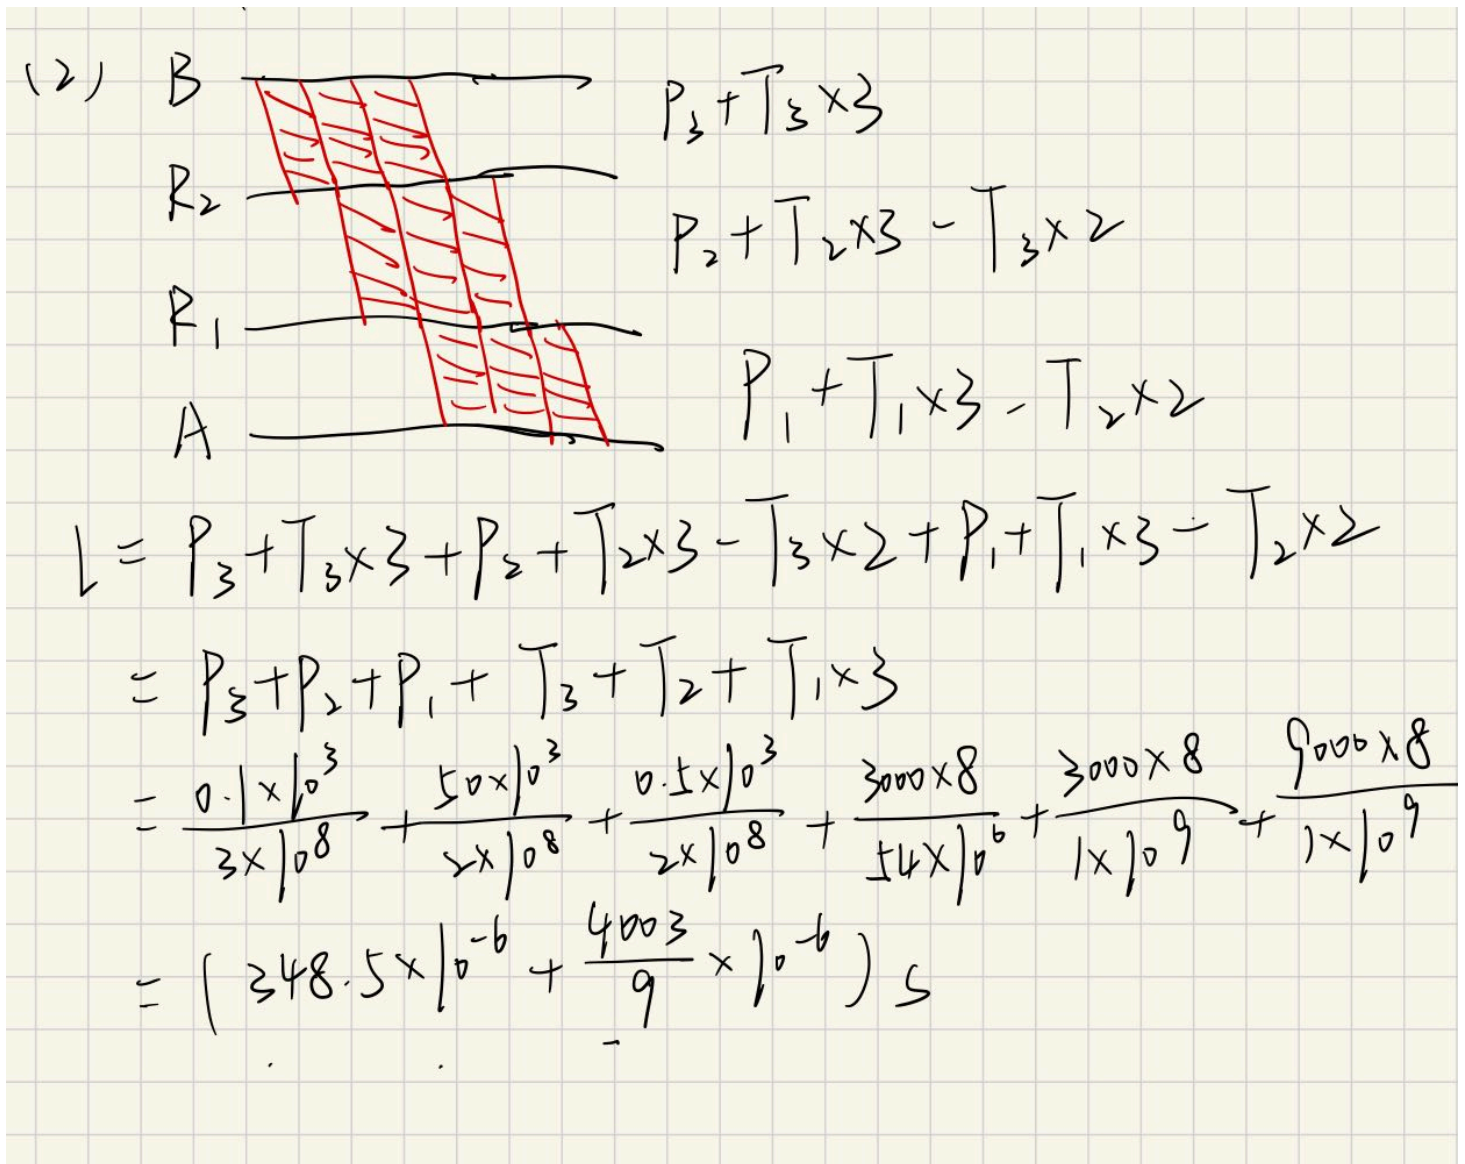 (2) B P₃ + T₃ × 3
R₂ P₂ + T₂ × 3 - T₃ × 2
R₁
A P₁ + T₁ × 3 - T₂ × 2
L = P₃ + T₃ × 3 + P₂ + T₂ × 3 - T₃ × 2 + P₁ + T₁ × 3 - T₂ × 2
= P₃ + P₂ + P₁ + T₃ + T₂ + T₁ × 3
= \frac{0.1 × 10³}{3 × 10⁸} + \frac{50 × 10³}{2 × 10⁸} + \frac{0.5 × 10³}{2 × 10⁸} + \frac{3000 × 8}{54 × 10⁶} + \frac{3000 × 8}{1 × 10⁹} + \frac{9000 × 8}{1 × 10⁹}
= ( 348.5 × 10⁻⁶ + \frac{4003}{9} × 10⁻⁶ ) s